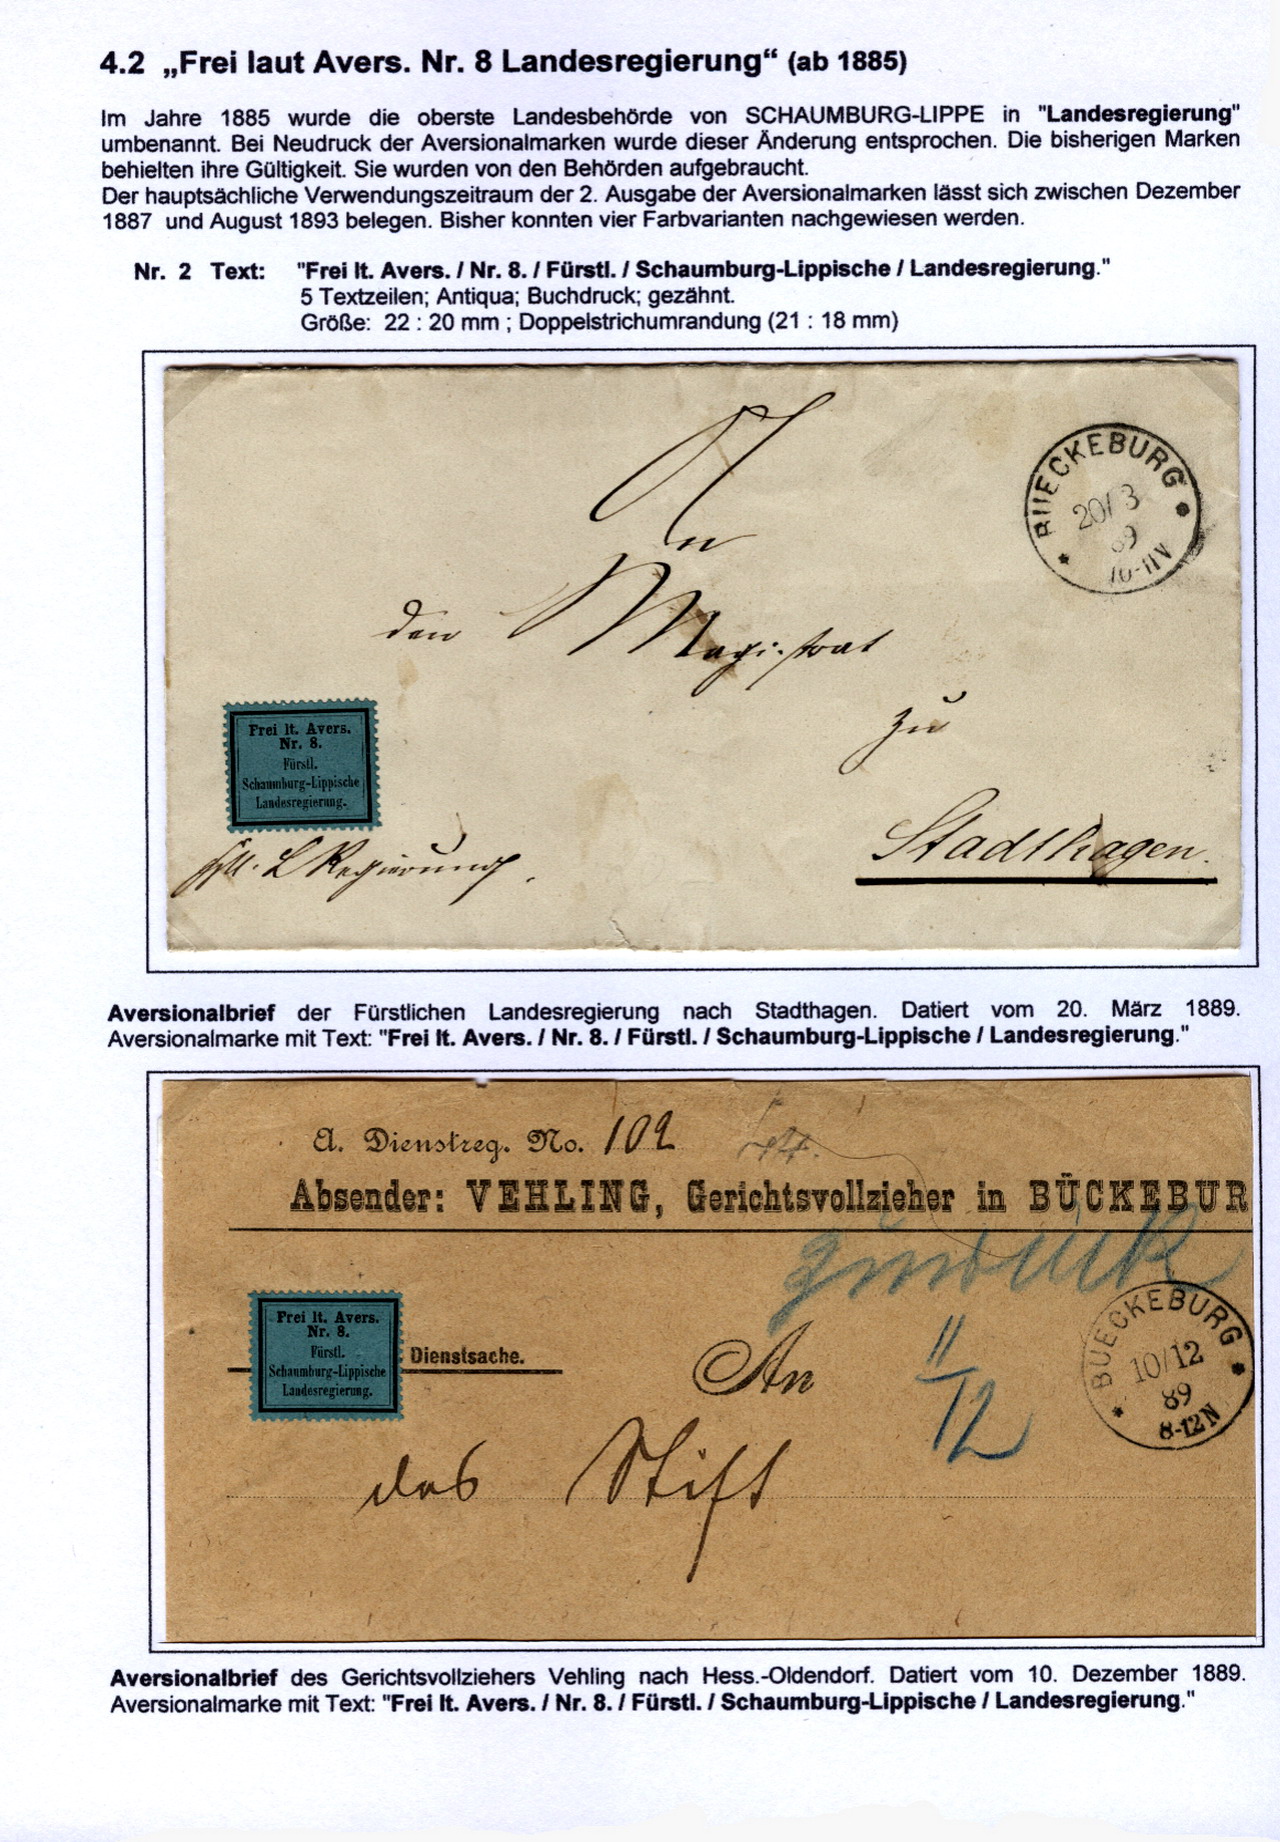 4.2 „Frei laut Avers. Nr. 8 Landesregierung“ (ab 1885)
Im Jahre 1885 wurde die oberste Landesbehörde von SCHAUMBURG-LIPPE in "Landesregierung"
umbenannt. Bei Neudruck der Aversionalmarken wurde dieser Änderung entsprochen. Die bisherigen Marken
behielten ihre Gültigkeit. Sie wurden von den Behörden aufgebraucht.
Der hauptsächliche Verwendungszeitraum der 2. Ausgabe der Aversionalmarken lässt sich zwischen Dezember
1887 und August 1893 belegen. Bisher konnten vier Farbvarianten nachgewiesen werden.
Nr. 2 Text: "Frei lt. Avers. / Nr. 8. / Fürstl. / Schaumburg-Lippische / Landesregierung."
5 Textzeilen; Antiqua; Buchdruck; gezähnt.
Größe: 22 : 20 mm ; Doppelstrichumrandung (21 : 18 mm)
BUECKEBURG
20/3
89
10-11V
An
den Magistrat
zu
Stadthagen.
Frei lt. Avers.
Nr. 8.
Fürstl.
Schaumburg-Lippische
Landesregierung.
L Regierung.
Aversionalbrief der Fürstlichen Landesregierung nach Stadthagen. Datiert vom 20. März 1889.
Aversionalmarke mit Text: "Frei lt. Avers. / Nr. 8. / Fürstl. / Schaumburg-Lippische / Landesregierung."
A. Dienstreg. No. 102
Absender: VEHLING, Gerichtsvollzieher in BÜCKEBUR
zurück
Frei lt. Avers.
Nr. 8.
Fürstl.
Schaumburg-Lippische
Landesregierung.
Dienstsache.
An
11/12
BUECKEBURG
10/12
89
8-12N
das Stift
Aversionalbrief des Gerichtsvollziehers Vehling nach Hess.-Oldendorf. Datiert vom 10. Dezember 1889.
Aversionalmarke mit Text: "Frei lt. Avers. / Nr. 8. / Fürstl. / Schaumburg-Lippische / Landesregierung."